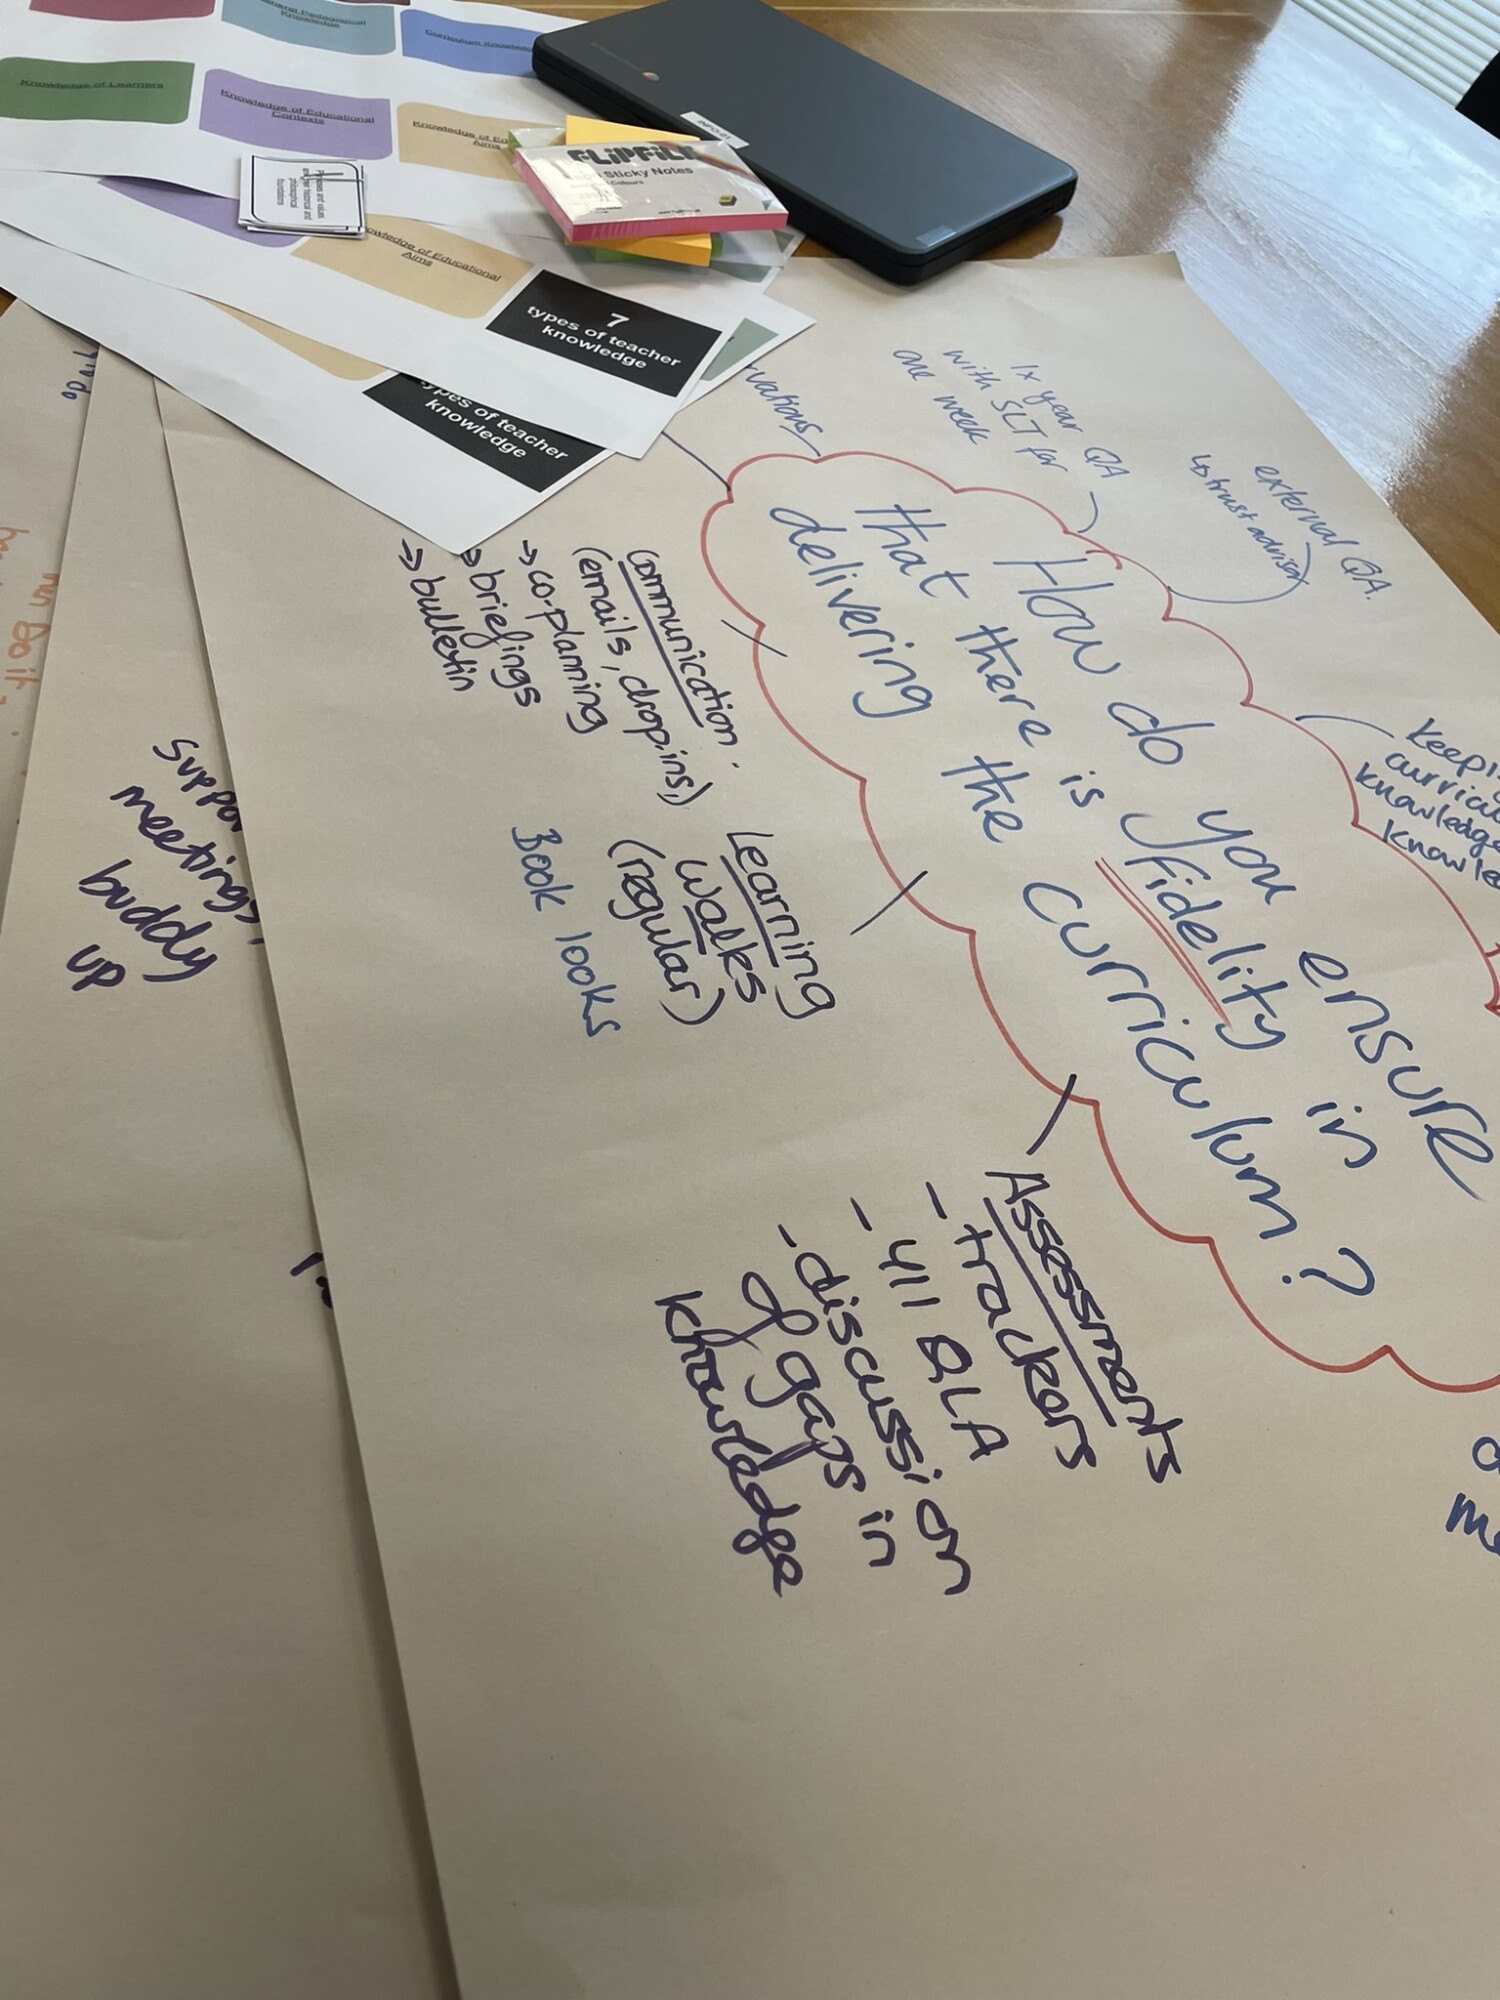 General Pedagogical
Knowledge
Knowledge of Learners
Knowledge of Educational
Contexts
Aims
FLIPFILE
Sticky Notes
Knowledge of Educational
Aims
7
types of teacher
knowledge
types of teacher
knowledge
1x year QA
with SLT for
one week
external QA.
↳ trust advisor
How do you ensure
that there is fidelity in
delivering the curriculum?
Communication.
(emails, drop.ins,)
→ co-planning
→ briefings
→ bulletin
Learning
Walks
(regular)
Book looks
Assessments
- trackers
- 411 QLA
- discussion
of gaps in
knowledge
knowledge
meetings,
buddy
up